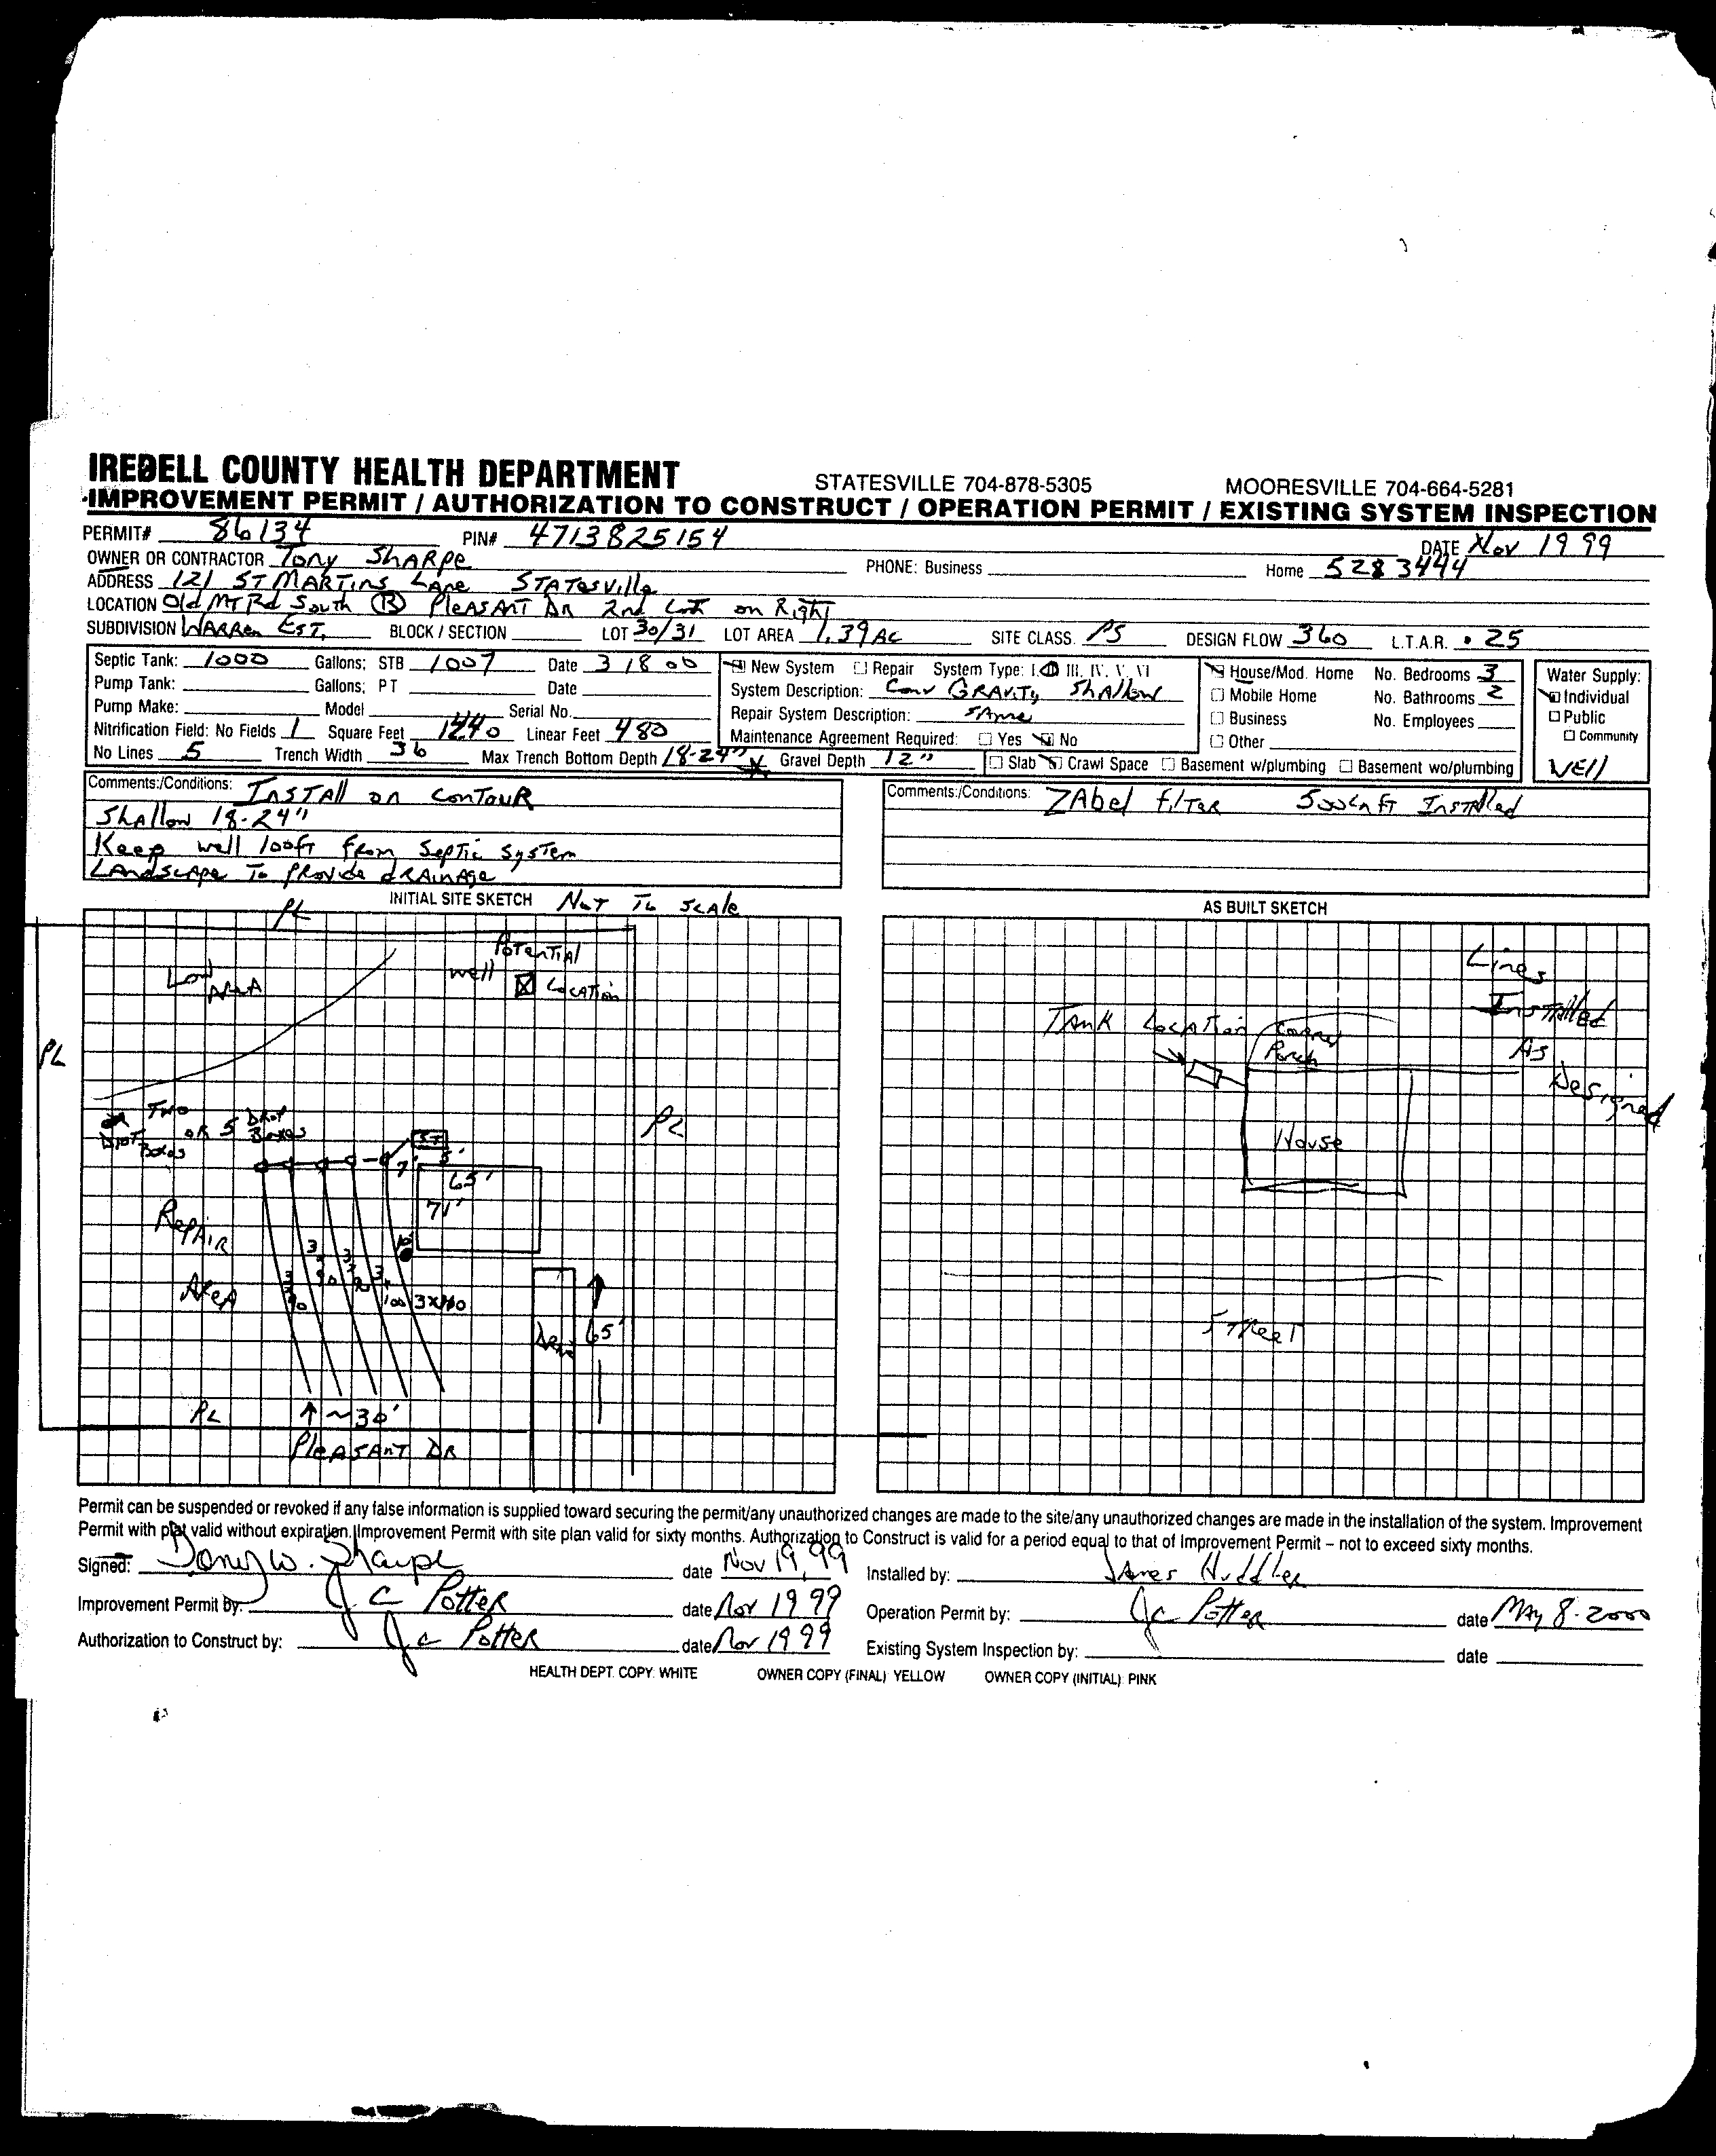 IREDELL COUNTY HEALTH DEPARTMENT STATESVILLE 704-878-5305 MOORESVILLE 704-664-5281
IMPROVEMENT PERMIT / AUTHORIZATION TO CONSTRUCT / OPERATION PERMIT / EXISTING SYSTEM INSPECTION
PERMIT# 86134 PIN# 4713825154 DATE Nov 19 99
OWNER OR CONTRACTOR Tony Sharpe PHONE: Business Home 528 3444
ADDRESS 121 ST MARTINS Lane STATESville
LOCATION Old MT Rd South (R) PLEASANT DR 2nd Lot on Right
SUBDIVISION WARREN EST. BLOCK / SECTION LOT 30/31 LOT AREA 1.39 AC SITE CLASS. PS DESIGN FLOW 360 L.T.A.R. .25
Septic Tank: 1000 Gallons; STB 1007 Date 3 18 00 New System Repair System Type: I. II III. IV. V. VI House/Mod. Home No. Bedrooms 3 Water Supply:
Pump Tank: Gallons; PT Date System Description: Conv GRAVITY Shallow Mobile Home No. Bathrooms 2 Individual
Pump Make: Model Serial No. Repair System Description: SAme Business No. Employees Public
Nitrification Field: No Fields 1 Square Feet 1440 Linear Feet 480 Maintenance Agreement Required: Yes No Other Community
No Lines 5 Trench Width 36 Max Trench Bottom Depth 18-24" Gravel Depth 12" Slab Crawl Space Basement w/plumbing Basement wo/plumbing WEll
Comments:/Conditions: INSTAll on CONTOUR
Shallow 18-24"
Keep well 100ft From Septic System
LANDSCAPE To PROVIDE dRAINAGE
Comments:/Conditions: ZAbel FilTER 500LnFt InsTAlled
INITIAL SITE SKETCH NOT To SCAle
PL
Low AREA
POTENTIAL
well LOCATION
PL
TWO OR 5 DROP Boxes
DIST Boxes
ST
7' 5'
65'
71'
PL
RepAIR
AReA
10'
3x90 3x90 3x90 3x100 3x110
Drive 65'
PL ~30'
PleASANT DR
AS BUILT SKETCH
Lines
InsTAlled
As
Designed
TANK LOCATION
Porch
House
STReeT
Permit can be suspended or revoked if any false information is supplied toward securing the permit/any unauthorized changes are made to the site/any unauthorized changes are made in the installation of the system. Improvement
Permit with plat valid without expiration. Improvement Permit with site plan valid for sixty months. Authorization to Construct is valid for a period equal to that of Improvement Permit – not to exceed sixty months.
Signed: Tony W. Sharpe date Nov 19, 99 Installed by: James Huddler
Improvement Permit by: J C Potter date Nov 19 99 Operation Permit by: Jc Potter date MAy 8-2000
Authorization to Construct by: Jc Potter date Nov 19 99 Existing System Inspection by: date
HEALTH DEPT. COPY: WHITE OWNER COPY (FINAL): YELLOW OWNER COPY (INITIAL): PINK